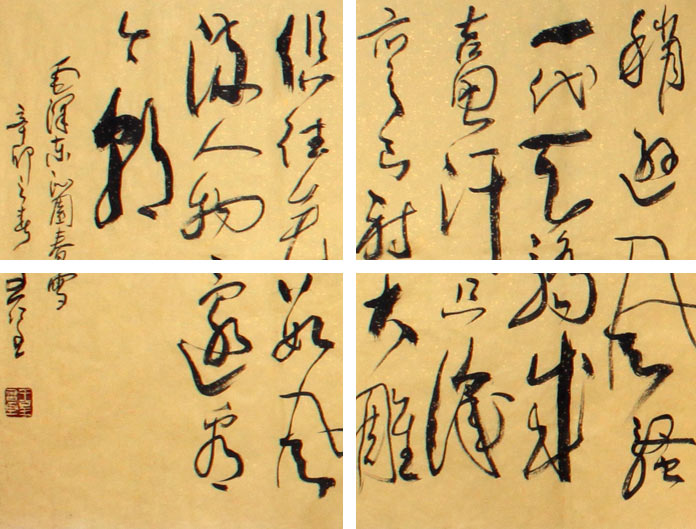 稍逊风骚
一代天骄成
吉思汗只识
弯弓射大雕
俱往矣数风
流人物还看
今朝
毛泽东沁园春雪
辛卯之春